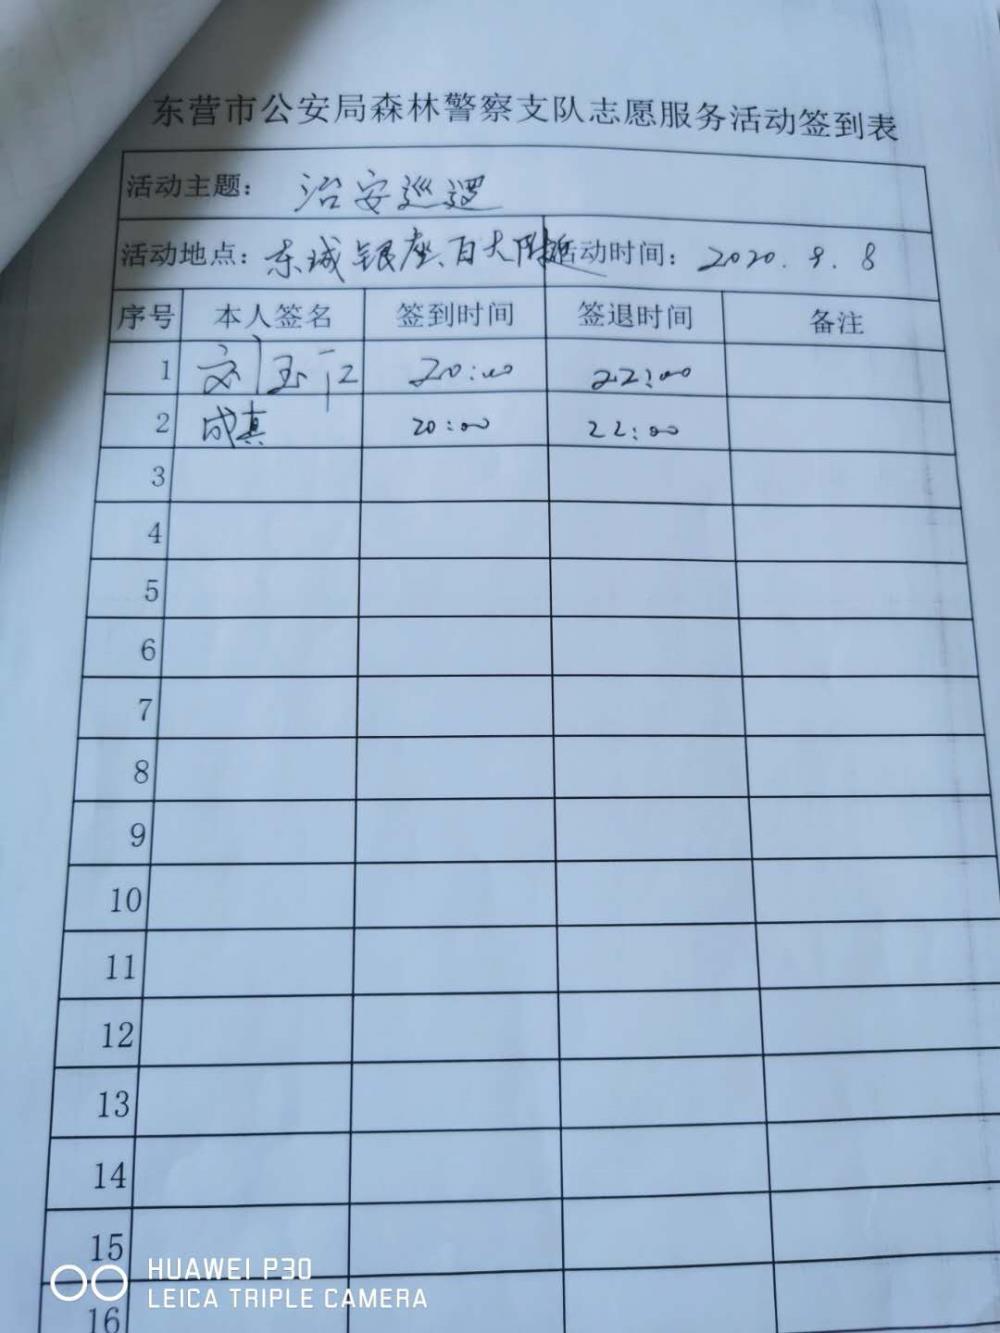 东营市公安局森林警察支队志愿服务活动签到表
活动主题： 治安巡逻
活动地点： 东城银座、百大附近 活动时间： 2020.9.8
序号 本人签名 签到时间 签退时间 备注
1 刘玉江 20:00 22:00
2 成真 20:00 22:00
3
4
5
6
7
8
9
10
11
12
13
14
15
16
HUAWEI P30
LEICA TRIPLE CAMERA